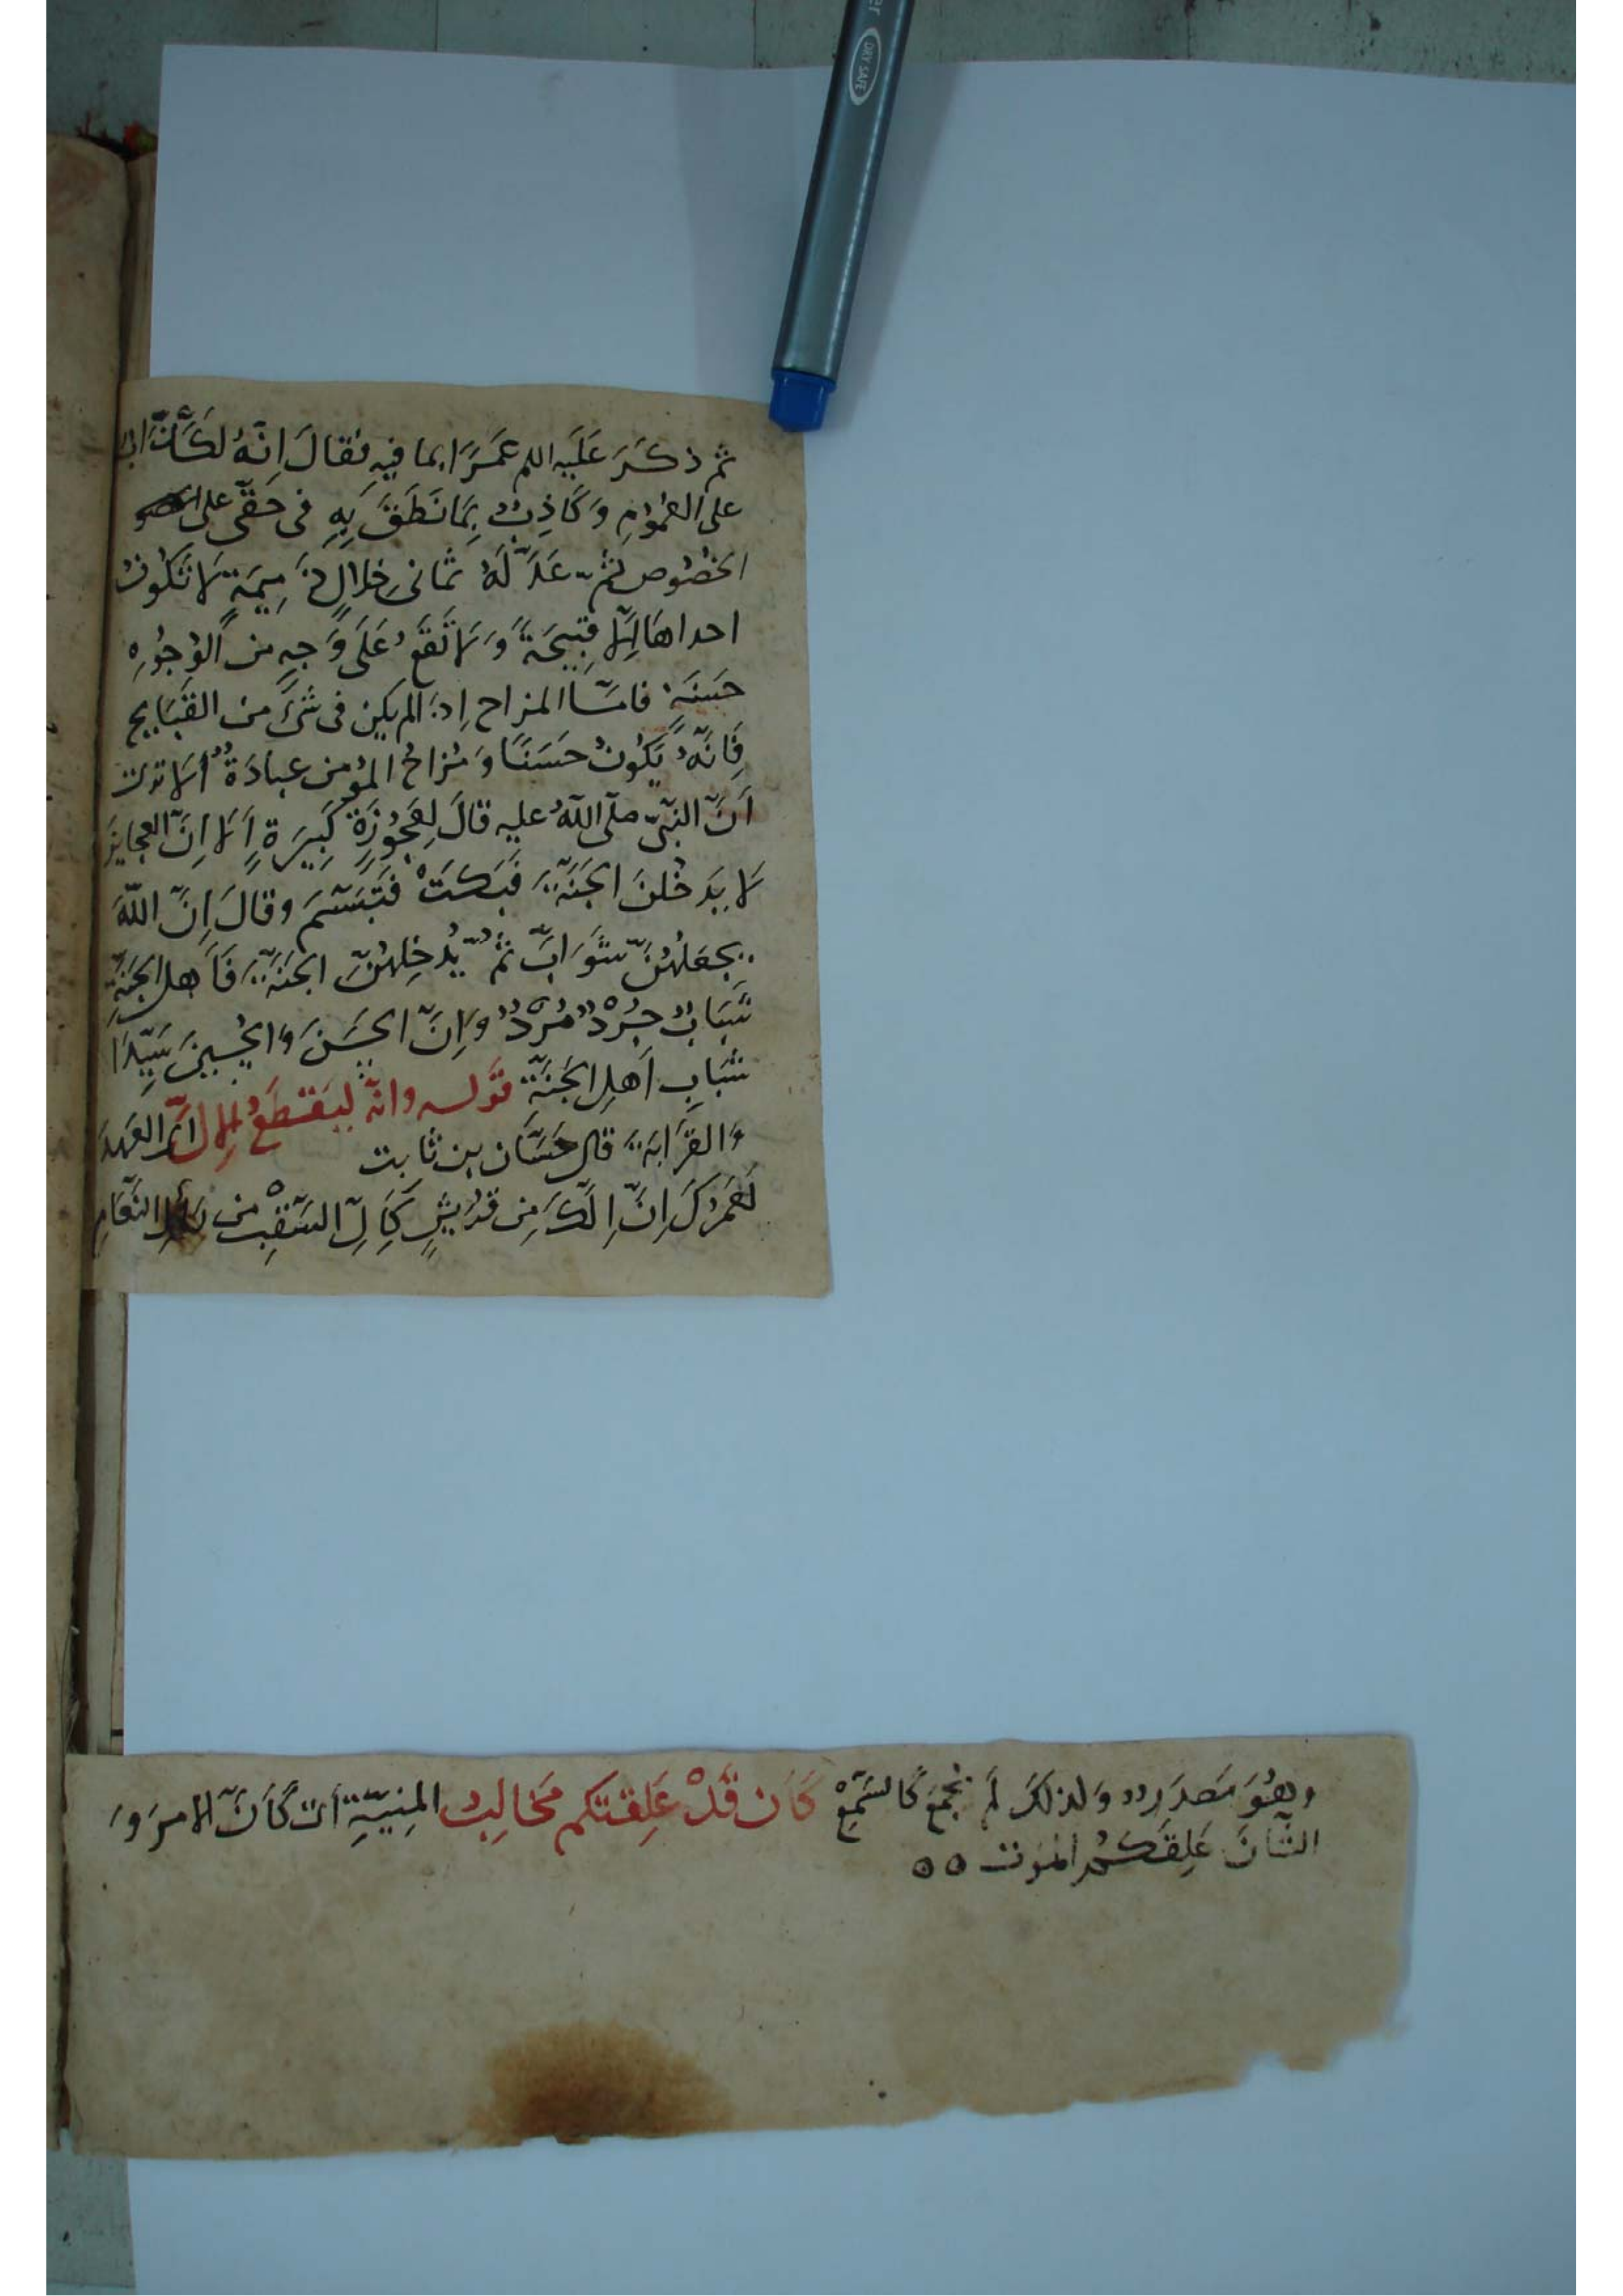 DRY SAFE
ثم ذكَرَ عَلَيه اللم عَمَرًا بما فيهِ فقالَ اِنّهُ لَكَذَّابٌ
على العُمُوْمِ وَكَاذِبٌ بِمَا نَطَقَ بِهِ فى حَقّى على
الخصُوص ثُمّ عَدَّ لَهُ ثمانى خِلالٍ ذَمِيمَةٍ لا تَكُونُ
احداهَا اِلّا قبِيحَةً وَلا تَقَعُ عَلَى وَجهٍ من الوُجُوْهِ
حَسَنَةٍ فامّا المزاح اِذا لم يكن فى شَىءٍ من القبَايحِ
فَانّهُ يَكُونُ حَسَنًا وَمُزاحُ المؤمن عبادَةٌ ألا ترى
أَنّ النّبىّ صلّى اللّهُ عليه قالَ لِعَجُوْزَةٍ كَبِيرَةٍ أَلا اِنّ العجايز
لا يَدخُلنَ الجَنّةَ فَبَكَتْ فَتَبَسّمَ وقالَ اِنّ اللّهَ
يجعَلُهُنّ شَوَابَّ ثُمّ يُدخِلهُنّ الجَنّةَ فَأَهل الجَنّةِ
شَبَابٌ جُرْدٌ مُرْدٌ وَاِنّ الحَسَنَ وَالحُسينَ سَيّدَا
شَبَابِ أَهلِ الجَنّةِ قَوله وانّه ليَقْطَعُ الإلّ العَهدَ
وَالقَرَابَةَ قال حَسّان بن ثابت
لَعَمرُكَ اِنّ اِلّكَ مِن قُرَيشٍ كَاِلّ السّقْبِ من رَألِ النّعَامِ
وهُوَ مَصدَرٌ وَلذلكَ لَم يُجمَع كالسّمْعِ كَأن قَدْ عَلِقتكم مَخَالِبُ المنِيّةِ أى كَأنّ الامرَ وَ
الشّأنَ عَلِقَكُم الموت ٥٥